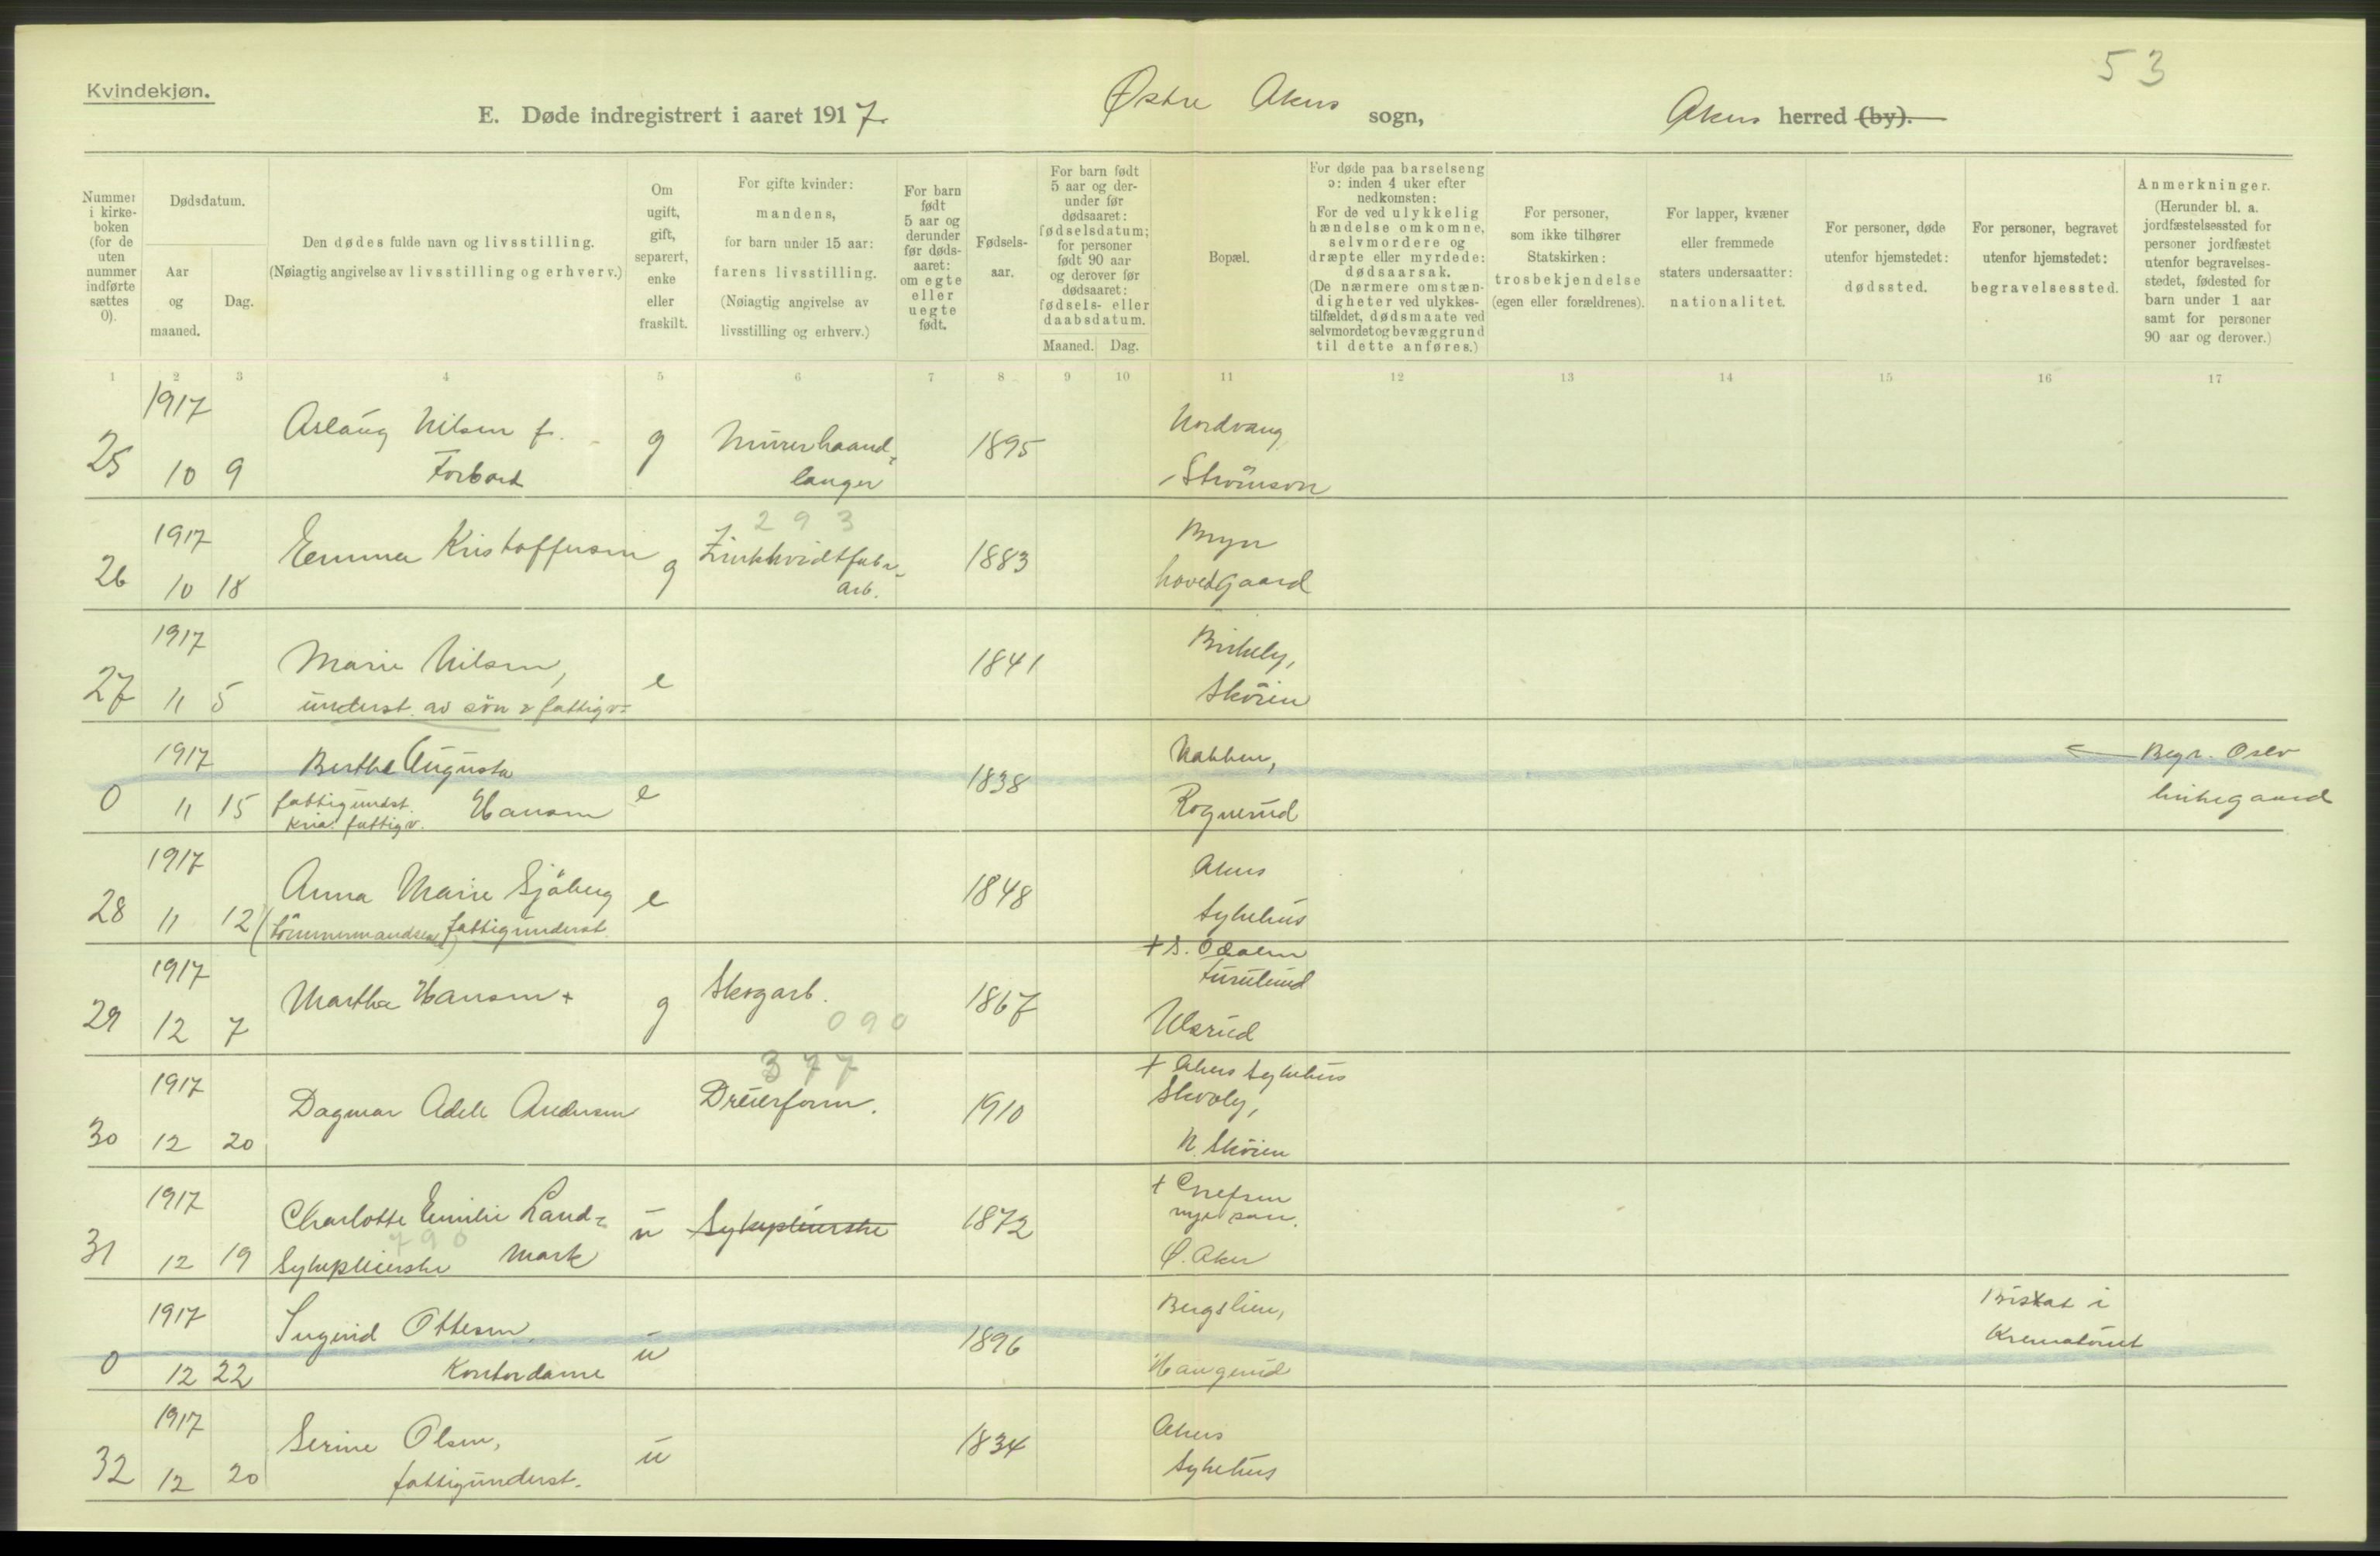 53
Kvindekjøn.
E. Døde indregistrert i aaret 1917. Østre Akers sogn, Akers herred (by).
Nummer i kirkeboken (for de uten nummer indførte sættes 0).
Dødsdatum.
Aar og maaned.
Dag.
Den dødes fulde navn og livsstilling.
(Nøiagtig angivelse av livsstilling og erhverv.)
Om ugift, gift, separert, enke eller fraskilt.
For gifte kvinder: mandens, for barn under 15 aar: farens livsstilling.
(Nøiagtig angivelse av livsstilling og erhverv.)
For barn født 5 aar og derunder før dødsaaret: om egte eller uegte født.
Fødselsaar.
For barn født 5 aar og derunder før dødsaaret: fødselsdatum; for personer født 90 aar og derover før dødsaaret: fødsels- eller daabsdatum.
Maaned. Dag.
Bopæl.
For døde paa barselseng ɔ: inden 4 uker efter nedkomsten:
For de ved ulykkelig hændelse omkomne, selvmordere og dræpte eller myrdede: dødsaarsak.
(De nærmere omstændigheter ved ulykkestilfældet, dødsmaate ved selvmordet og bevæggrund til dette anføres.)
For personer, som ikke tilhører Statskirken: trosbekjendelse (egen eller forældrenes).
For lapper, kvæner eller fremmede staters undersaatter: nationalitet.
For personer, døde utenfor hjemstedet: dødssted.
For personer, begravet utenfor hjemstedet: begravelsessted.
Anmerkninger.
(Herunder bl. a. jordfæstelsessted for personer jordfæstet utenfor begravelsesstedet, fødested for barn under 1 aar samt for personer 90 aar og derover.)
1 2 3 4 5 6 7 8 9 10 11 12 13 14 15 16 17
1917
25 10 9 Aslaug Nilsen f. g Murerhaand- 1895 Nordvang
Forbord langer Strömsvn
293
1917
26 10 18 Emma Kristoffersen g Zinkhvidtfabr. 1883 Bryn
arb. hovedgaard
1917
27 11 5 Marie Nilsen, e 1841 Birkely,
underst. av sön & fattigv. Sköien
1917
0 11 15 Berthe Augusta e 1838 Nabben, Begr. Oslo
fattigundst. Hansen Rognerud kirkegaard
Kria. fattigv.
1917
28 11 12 Anna Marie Sjöberg e 1848 Akers
(tömmermandsenke) fattigunderst. sykehus
1917
+ S. Odalen
29 12 7 Martha Hansen + g Skogarb. 1867
Ulsrud
090
377
1917
+ Akers sykehus
30 12 20 Dagmar Adele Andersen Dreierform. 1910 Skoly,
N. Sköien
1917
+ Grefsen
nye san.
31 12 19 Charlotte Emilie Land- u Sykepleierske 1872
790
Sykepleierske mark Ø. Aker
1917
0 12 22 Ingerid Ottesen u 1896 Bergslien, Bisat i
Kontordame Haugerud Krematoriet
1917
32 12 20 Serine Olsen, u 1834 Akers
fattigunderst. sykehus